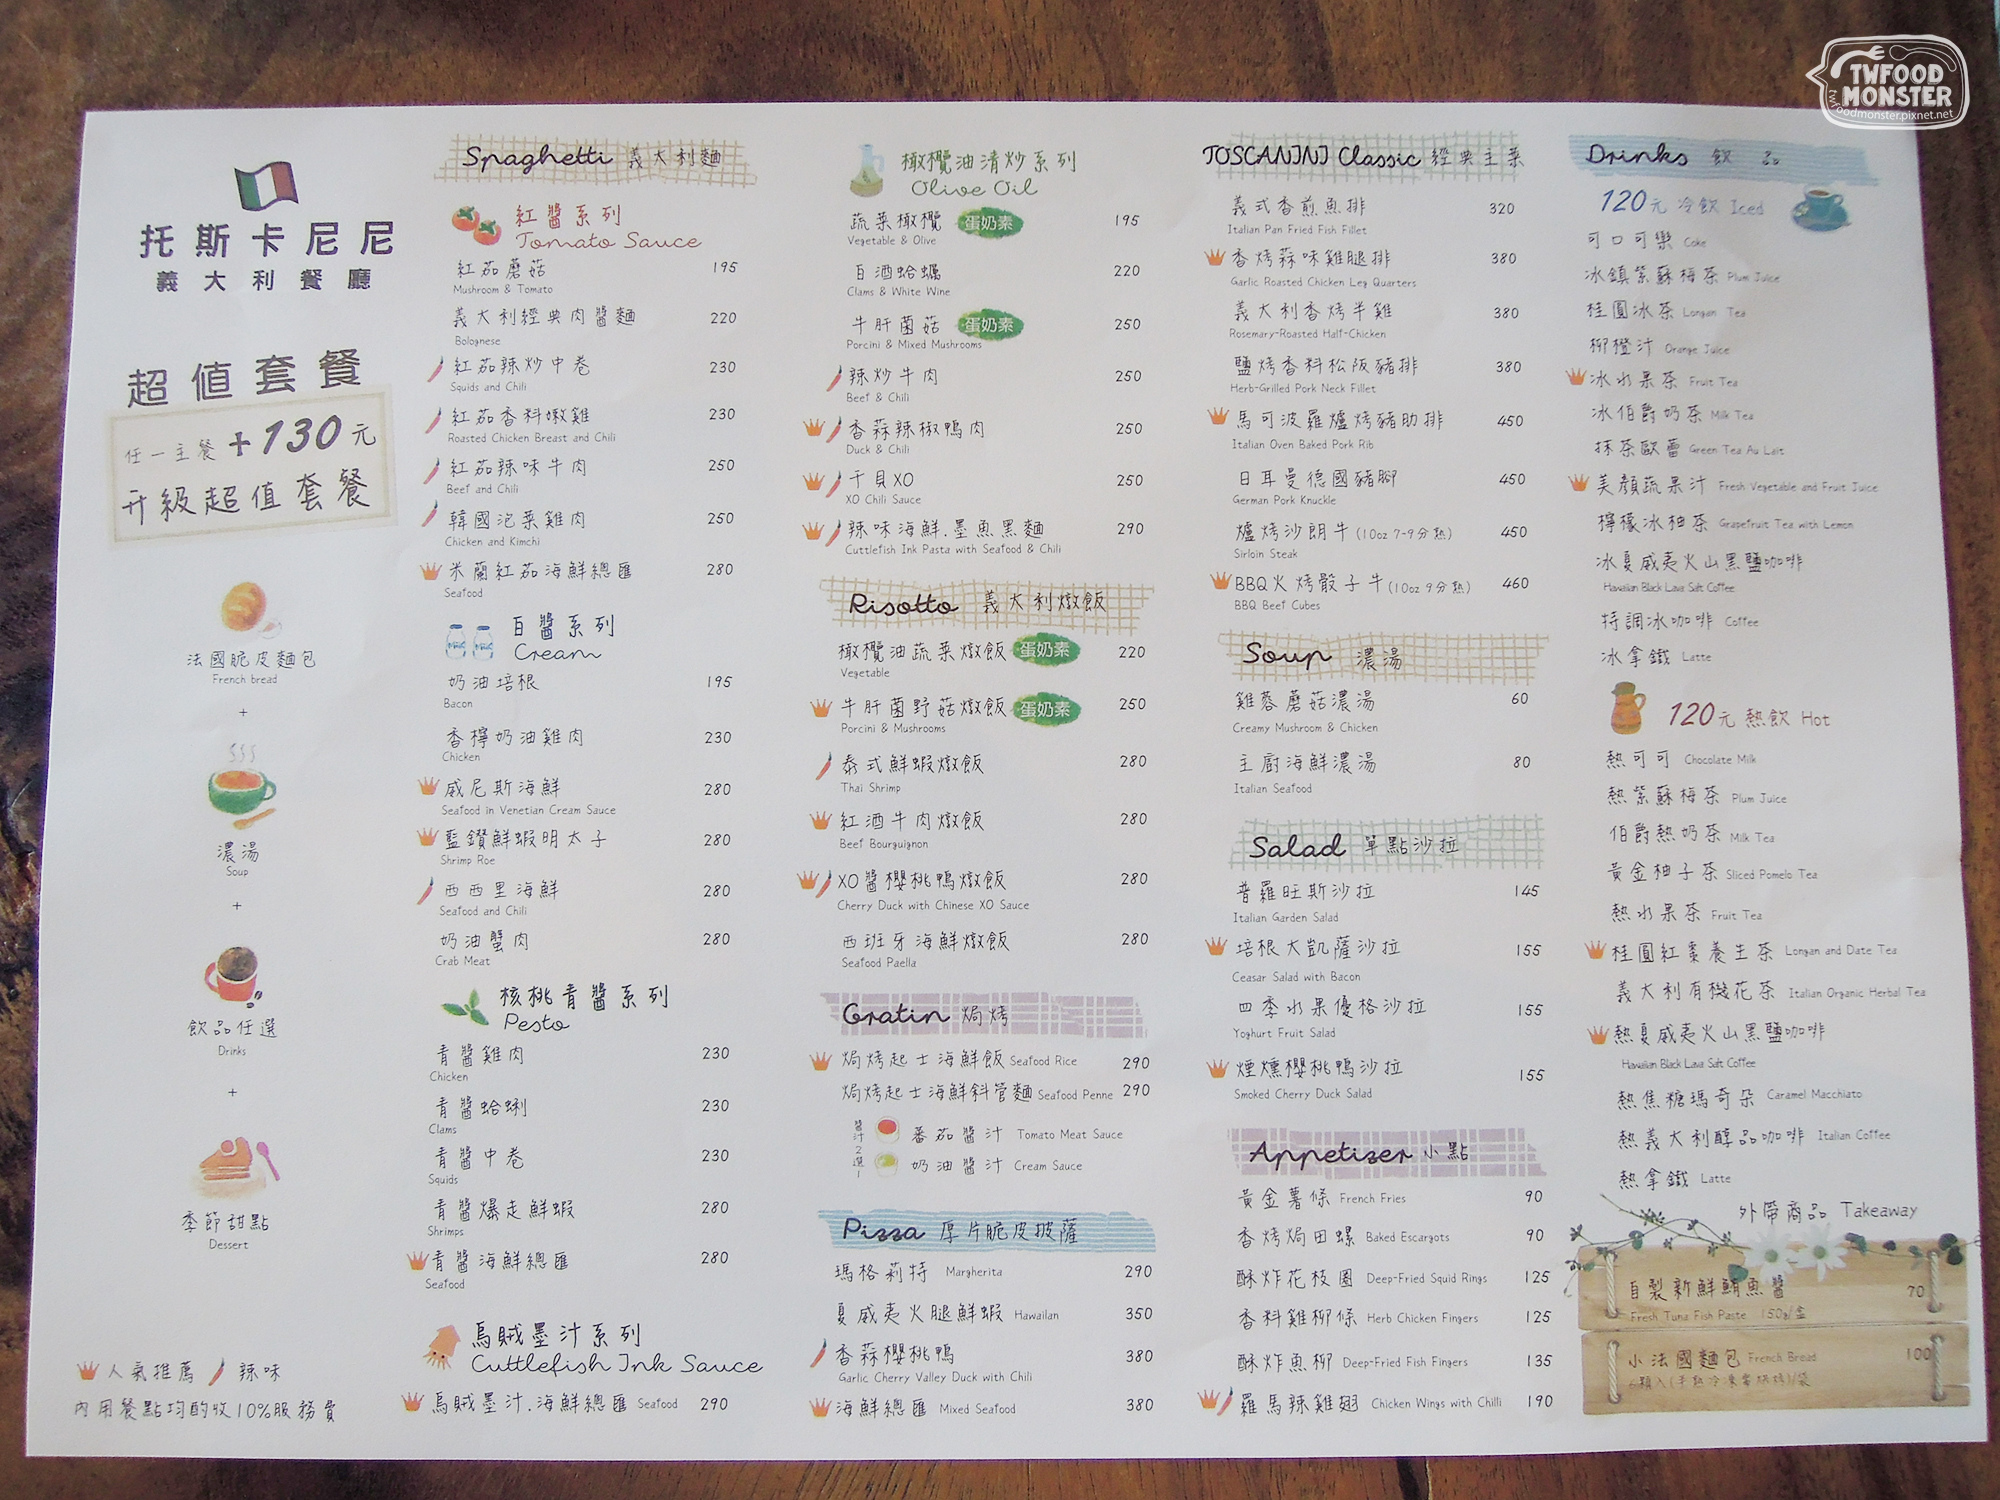 TWFOOD
MONSTER
twfoodmonster.pixnet.net
托斯卡尼尼
義大利餐廳
超值套餐
任一主餐+130元
升級超值套餐
法國脆皮麵包
French bread
+
濃湯
Soup
+
飲品任選
Drinks
+
季節甜點
Dessert
人氣推薦 辣味
內用餐點均酌收10%服務費
Spaghetti 義大利麵
紅醬系列
Tomato Sauce
紅茄蘑菇 195
Mushroom & Tomato
義大利經典肉醬麵 220
Bolognese
紅茄辣炒中卷 230
Squids and Chili
紅茄香料嫩雞 230
Roasted Chicken Breast and Chili
紅茄辣味牛肉 250
Beef and Chili
韓國泡菜雞肉 250
Chicken and Kimchi
米蘭紅茄海鮮總匯 280
Seafood
白醬系列
Cream
奶油培根 195
Bacon
香檸奶油雞肉 230
Chicken
威尼斯海鮮 280
Seafood in Venetian Cream Sauce
藍鑽鮮蝦明太子 280
Shrimp Roe
西西里海鮮 280
Seafood and Chili
奶油蟹肉 280
Crab Meat
核桃青醬系列
Pesto
青醬雞肉 230
Chicken
青醬蛤蜊 230
Clams
青醬中卷 230
Squids
青醬爆走鮮蝦 280
Shrimps
青醬海鮮總匯 280
Seafood
烏賊墨汁系列
Cuttlefish Ink Sauce
烏賊墨汁.海鮮總匯 Seafood 290
橄欖油清炒系列
Olive Oil
蔬菜橄欖 蛋奶素 195
Vegetable & Olive
白酒蛤蠣 220
Clams & White Wine
牛肝菌菇 蛋奶素 250
Porcini & Mixed Mushrooms
辣炒牛肉 250
Beef & Chili
香蒜辣椒鴨肉 250
Duck & Chili
干貝XO 250
XO Chili Sauce
辣味海鮮.墨魚黑麵 290
Cuttlefish Ink Pasta with Seafood & Chili
Risotto 義大利燉飯
橄欖油蔬菜燉飯 蛋奶素 220
Vegetable
牛肝菌野菇燉飯 蛋奶素 250
Porcini & Mushrooms
泰式鮮蝦燉飯 280
Thai Shrimp
紅酒牛肉燉飯 280
Beef Bourguignon
XO醬櫻桃鴨燉飯 280
Cherry Duck with Chinese XO Sauce
西班牙海鮮燉飯 280
Seafood Paella
Gratin 焗烤
焗烤起士海鮮飯 Seafood Rice 290
焗烤起士海鮮斜管麵 Seafood Penne 290
醬汁2選1
蕃茄醬汁 Tomato Meat Sauce
奶油醬汁 Cream Sauce
Pizza 厚片脆皮披薩
瑪格莉特 Margherita 290
夏威夷火腿鮮蝦 Hawaiian 350
香蒜櫻桃鴨 380
Garlic Cherry Valley Duck with Chili
海鮮總匯 Mixed Seafood 380
TOSCANINI Classic 經典主菜
義式香煎魚排 320
Italian Pan Fried Fish Fillet
香烤蒜味雞腿排 380
Garlic Roasted Chicken Leg Quarters
義大利香烤半雞 380
Rosemary-Roasted Half-Chicken
鹽烤香料松阪豬排 380
Herb-Grilled Pork Neck Fillet
馬可波羅爐烤豬肋排 450
Italian Oven Baked Pork Rib
日耳曼德國豬腳 450
German Pork Knuckle
爐烤沙朗牛(10oz 7-9分熟) 450
Sirloin Steak
BBQ火烤骰子牛(10oz 9分熟) 460
BBQ Beef Cubes
Soup 濃湯
雞蓉蘑菇濃湯 60
Creamy Mushroom & Chicken
主廚海鮮濃湯 80
Italian Seafood
Salad 單點沙拉
普羅旺斯沙拉 145
Italian Garden Salad
培根大凱薩沙拉 155
Ceasar Salad with Bacon
四季水果優格沙拉 155
Yoghurt Fruit Salad
煙燻櫻桃鴨沙拉 155
Smoked Cherry Duck Salad
Appetizer 小點
黃金薯條 French Fries 90
香烤焗田螺 Baked Escargots 90
酥炸花枝圈 Deep-Fried Squid Rings 125
香料雞柳條 Herb Chicken Fingers 125
酥炸魚柳 Deep-Fried Fish Fingers 135
羅馬辣雞翅 Chicken Wings with Chilli 190
Drinks 飲品
120元 冷飲 Iced
可口可樂 Coke
冰鎮紫蘇梅茶 Plum Juice
桂圓冰茶 Longan Tea
柳橙汁 Orange Juice
冰水果茶 Fruit Tea
冰伯爵奶茶 Milk Tea
抹茶歐蕾 Green Tea Au Lait
美顏蔬果汁 Fresh Vegetable and Fruit Juice
檸檬冰柚茶 Grapefruit Tea with Lemon
冰夏威夷火山黑鹽咖啡
Hawaiian Black Lava Salt Coffee
特調冰咖啡 Coffee
冰拿鐵 Latte
120元 熱飲 Hot
熱可可 Chocolate Milk
熱紫蘇梅茶 Plum Juice
伯爵熱奶茶 Milk Tea
黃金柚子茶 Sliced Pomelo Tea
熱水果茶 Fruit Tea
桂圓紅棗養生茶 Longan and Date Tea
義大利有機花茶 Italian Organic Herbal Tea
熱夏威夷火山黑鹽咖啡
Hawaiian Black Lava Salt Coffee
熱焦糖瑪奇朵 Caramel Macchiato
熱義大利醇品咖啡 Italian Coffee
熱拿鐵 Latte
外帶商品 Takeaway
自製新鮮鮪魚醬 70
Fresh Tuna Fish Paste 150g/盒
小法國麵包 French Bread 100